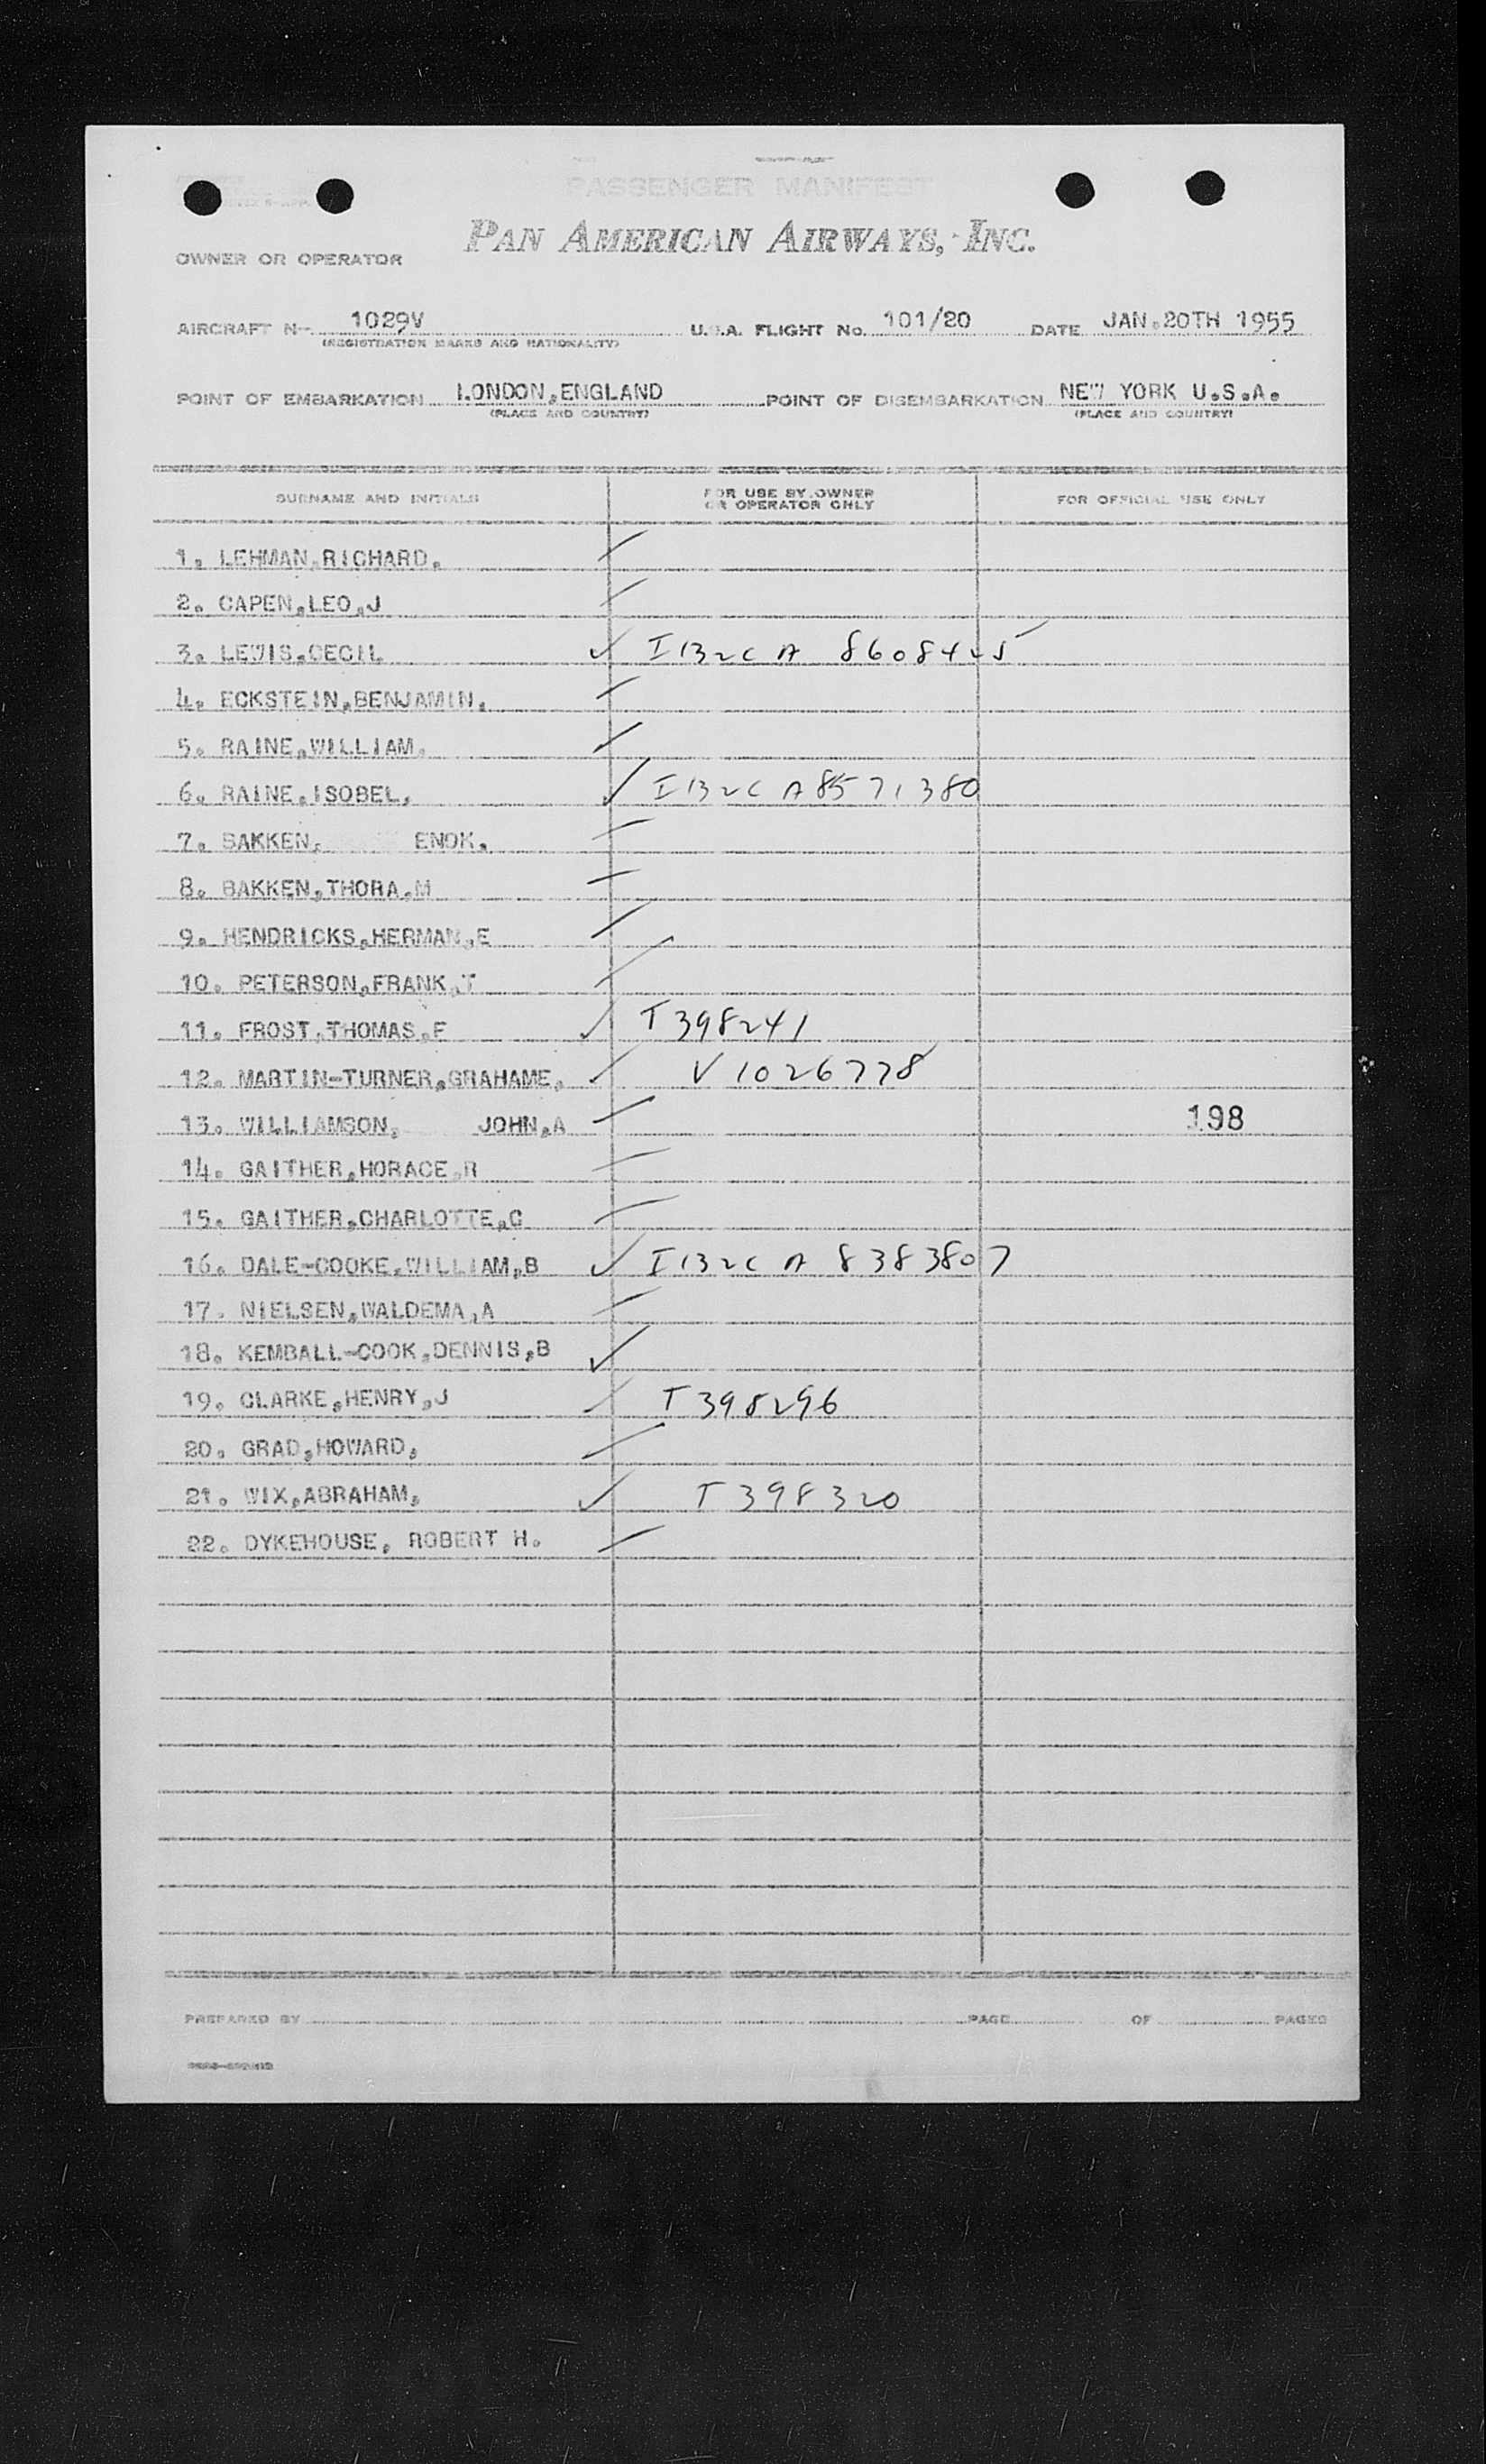 PASSENGER MANIFEST
PAN AMERICAN AIRWAYS, INC.
OWNER OR OPERATOR
AIRCRAFT No. 1029V U.S.A. FLIGHT No. 101/20 DATE JAN.20TH 1955
(REGISTRATION MARKS AND NATIONALITY)
POINT OF EMBARKATION LONDON,ENGLAND POINT OF DISEMBARKATION NEW YORK U.S.A.
(PLACE AND COUNTRY) (PLACE AND COUNTRY)
SURNAME AND INITIALS FOR USE BY OWNER OR OPERATOR ONLY FOR OFFICIAL USE ONLY
1. LEHMAN,RICHARD,
2. CAPEN,LEO,J
3. LEWIS,CECIL ✓ I132C A 8608425
4. ECKSTEIN,BENJAMIN,
5. RAINE,WILLIAM,
6. RAINE,ISOBEL, ✓ I132C A8571380
7. BAKKEN, ENOK,
8. BAKKEN,THORA,M
9. HENDRICKS,HERMAN,E
10. PETERSON,FRANK,T
11. FROST,THOMAS,F ✓ T398241
12. MARTIN-TURNER,GRAHAME, ✓ V1026778
13. WILLIAMSON, JOHN,A 198
14. GAITHER,HORACE,R
15. GAITHER,CHARLOTTE,C
16. DALE-COOKE,WILLIAM,B ✓ I132C A 8383807
17. NIELSEN,WALDEMA,A
18. KEMBALL-COOK,DENNIS,B ✓
19. CLARKE,HENRY,J T398296
20. GRAD,HOWARD,
21. WIX,ABRAHAM, ✓ T398320
22. DYKEHOUSE, ROBERT H.
PREPARED BY PAGE OF PAGES